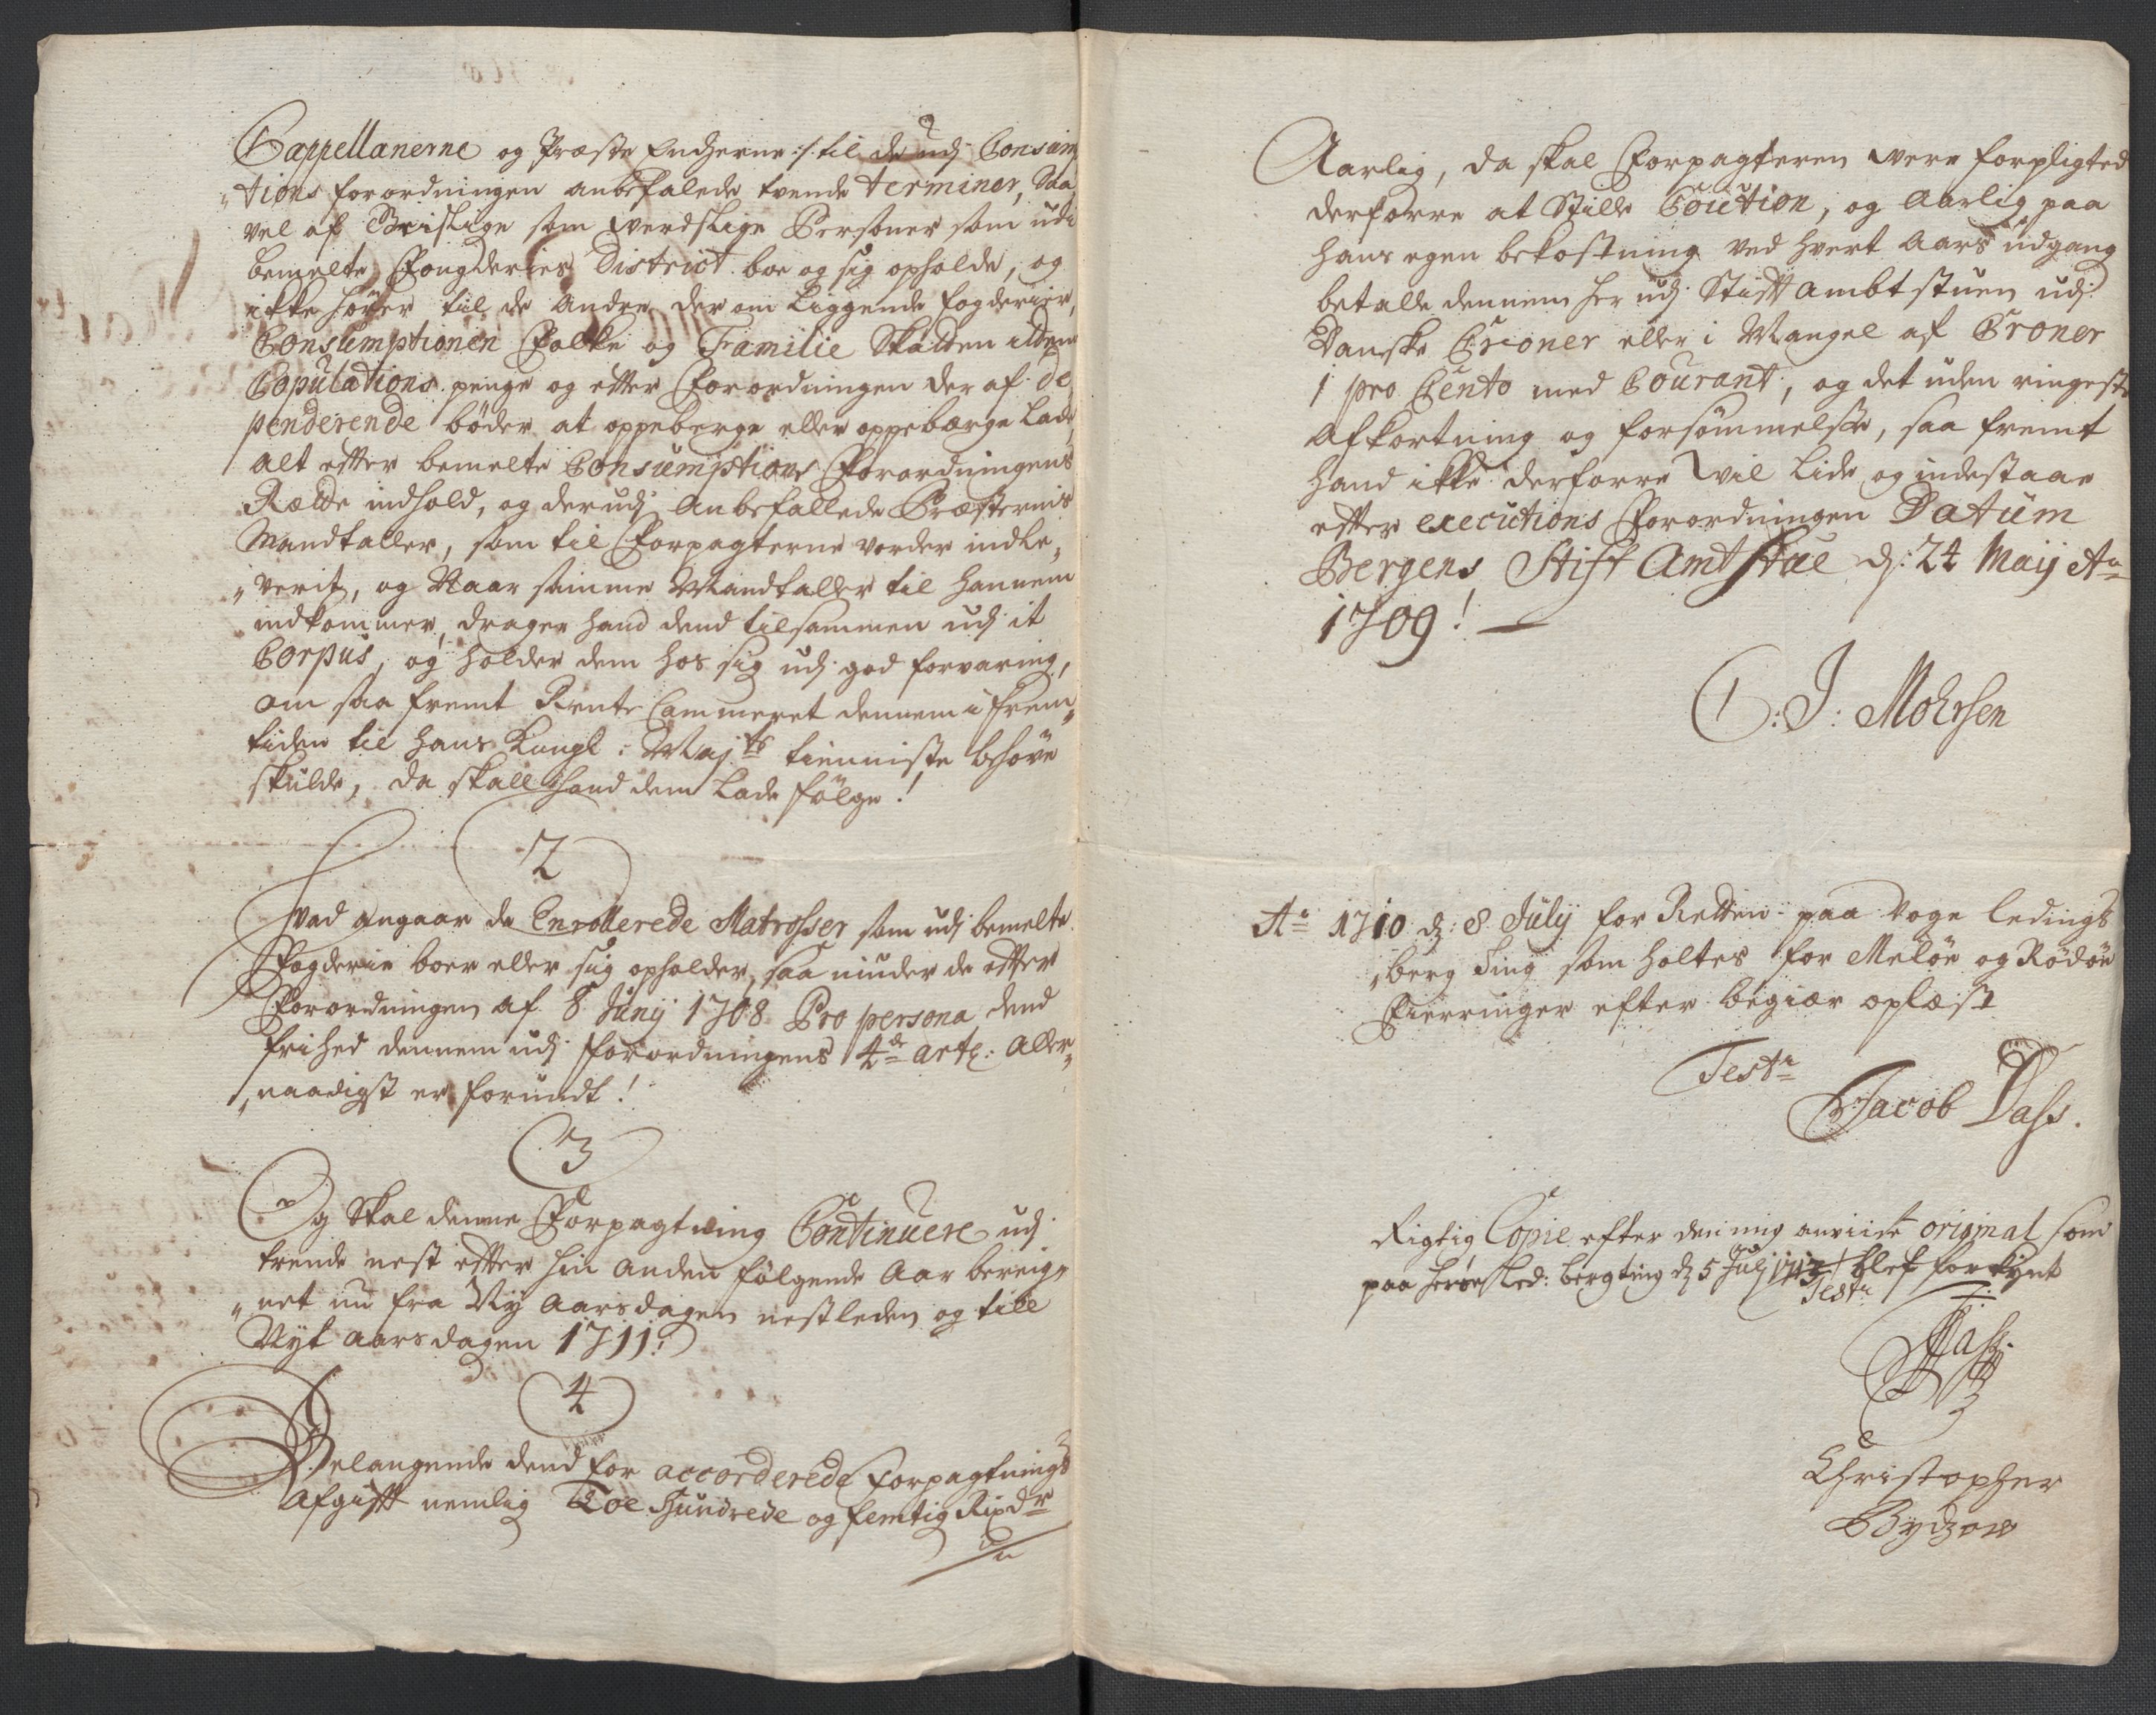 Cappellanerne og Præste Enckerne :/: til de udj Consump
„tions forordningen anbefalede tvende terminer, Saa
vel af Geistlige som verdslige Personer som udi
bemelte Fougderies District boe og sig opholde, og
icke hører til de andre der om liggende fogderier,
Consumptionen Folke og Familie Skatten item
Copulations penge og efter Forordningen der af de
penderende bøder at oppeberge eller oppebærge lade,
alt efter bemelte Consumptions Forordningens
Rætte indhold, og derudj anbefallede Præsternis
Mandtaller, som til Forpagterne vorder indle„
„verit, og Naar samme Mandtaller til hannem
indkommer, drager hand dend tilsammen udj it
Corpus, og holder dem hos sig udj god forvaring,
om saa fremt Rente Cammeret dennem i frem„
tiden til hans Kongl: Maj:ts tienniste behøve
skulde, da skall hand dem lade følge!
2
Hvad angaar de Enrollerede Matrosser som udj bemelte
Fogderie boer eller sig opholder, saa niuder de efter
Forordningen af 8 Junij 1708 Pro persona dend
frihed dennem udj forordningens 4de artl: aller„
„naadigst er forundt!
3
Og Skal denne Forpagtning Continuere udj
trende nest efter hin anden følgende Aar bereig„
„net nu fra Ny Aarsdagen nestleden og till
Nyt aarsdagen 1711!
4
Belangende dend for accorderede Forpagtnings
Afgift nemlig Toe Hundrede og femtig Rixdr
Aarlig, da skal Forpagteren være forpligted
derforre at Stille Coution, og Aarlig paa
hans egen bekostning ved hvert Aars udgang
betalle dennem her udj Stift ambtstuen udj
Danske Croner eller i Mangel af Croner
1 pro Cento med Courant, og det uden ringeste
Afkortning og forsømmelse, saa fremt
hand icke derforre Vil lide og indestaae
efter executions Forordningen Datum
Bergens Stift Amt Stue d: 24 Maij Ao
1709!
C: J: Mohrsen
Ao 1710 d: 8 Julij for Retten paa Voge ledings
„berg ting som holtes for Meløe og Rødøe
Fierringer efter begiær oplæst
Teste
Jacob Dass.
Rigtig Copie efter den mig anviiste original som
paa Herøe Led: bergting d 5 Julj 1710 blef forkynt
Teste
JDass.
Christopher
Bydzow